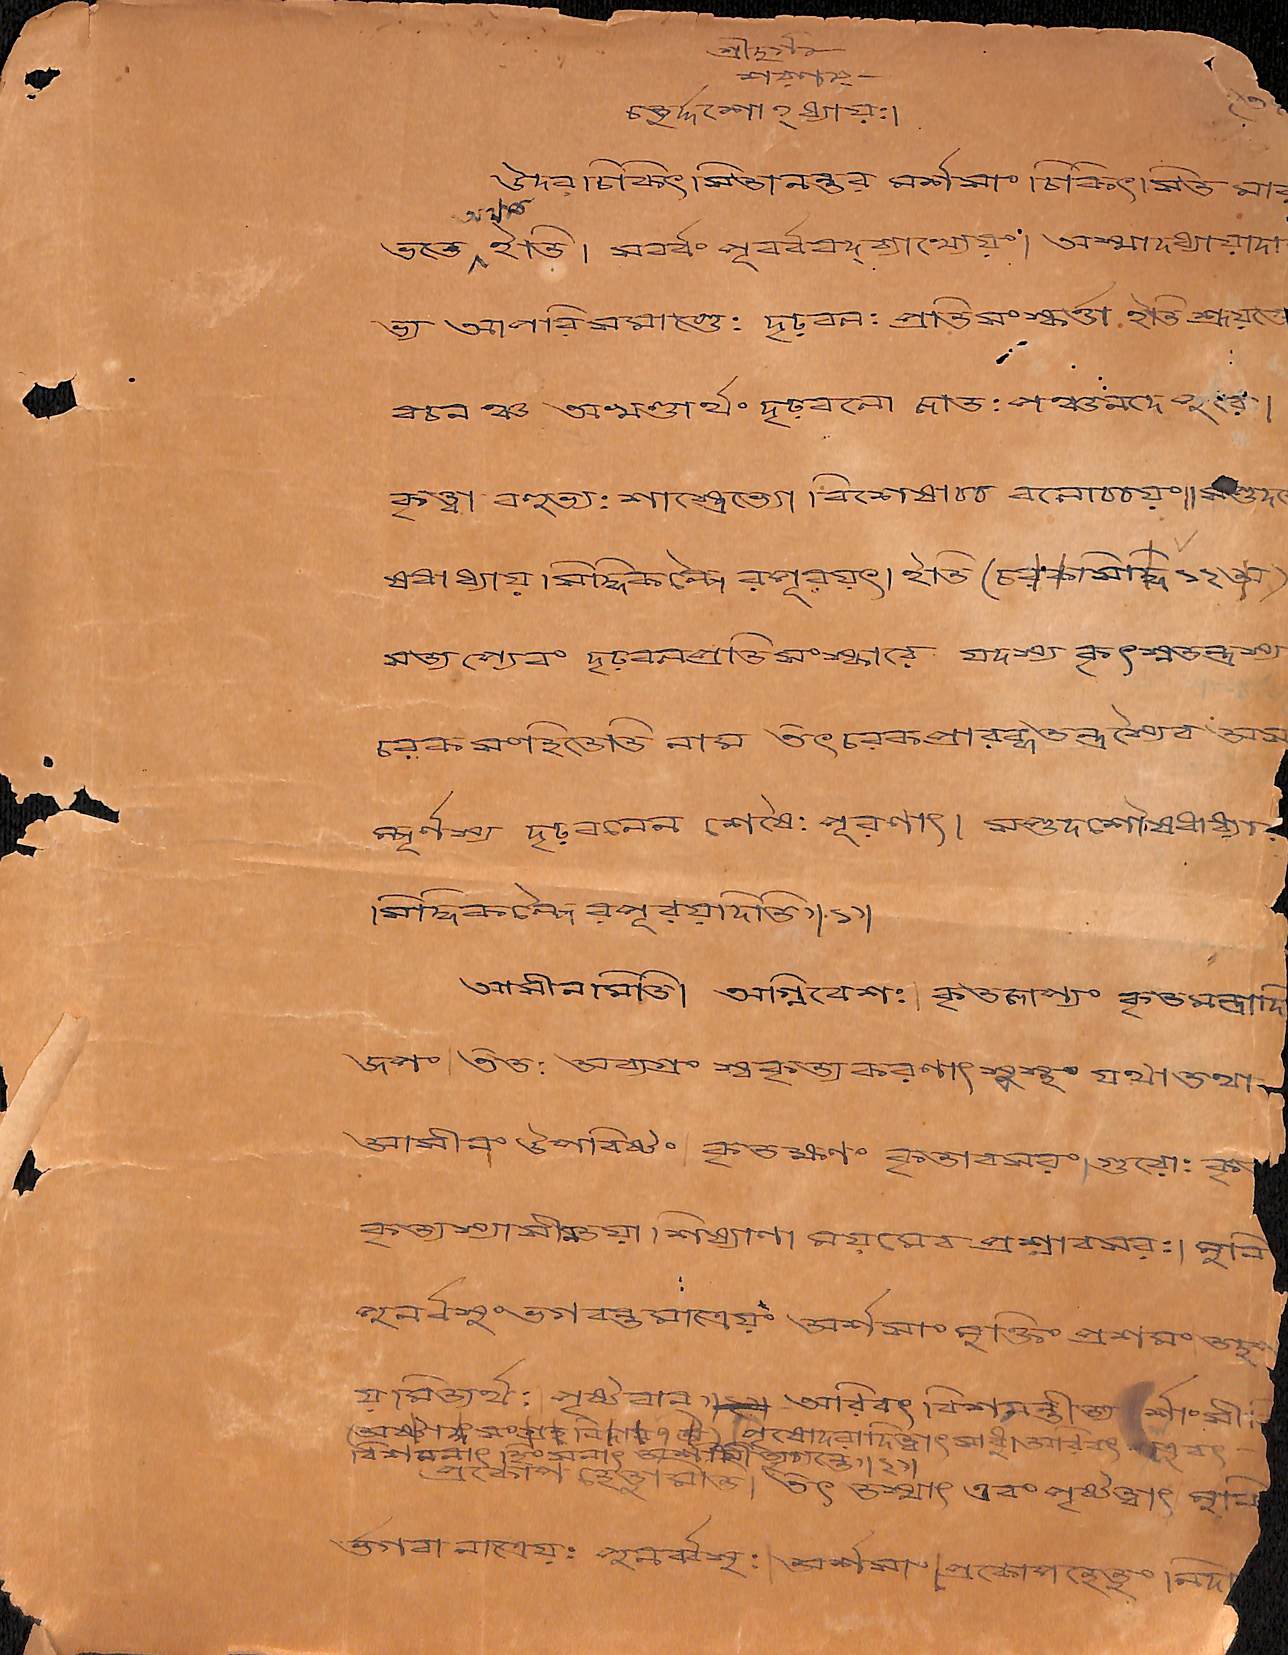 শ্রীদুর্গা
শরণং
চতুর্দ্দশোঽধ্যায়ঃ।
উদরচিকিৎসিতানন্তর মর্শসাং চিকিৎসিত মার
অথাত
ভতে ইতি। সর্ব্বং পূর্ব্ববদ্ব্যাখ্যেয়ং। অস্মাদধ্যায়াদা
ভ্য আপরিসমাপ্তেঃ দৃঢ়বলঃ প্রতিসংস্কর্ত্তা ইতি শ্রূয়তে
বচনঞ্চ অখণ্ডার্থং দৃঢ়বলো জাতঃ পঞ্চনদে পুরে।
কৃত্বা বহুভ্যঃ শাস্ত্রেভ্যো বিশেষাচ্চ বলোচ্চয়ং॥ সপ্তদশৌ
ষধাধ্যায় সিদ্ধিকল্পৈ রপূরয়ৎ। ইতি (চরক সিদ্ধি ১২ অ)
সত্যপ্যেবং দৃঢ়বলপ্রতিসংস্কারে যদস্য কৃৎস্নতন্ত্রস্য
চরকসংহিতেতি নাম তৎ চরকপ্রারব্ধতন্ত্রস্যৈব অস
ম্পূর্ণস্য দৃঢ়বলেন শেষৈঃ পূরণাৎ। সপ্তদশৌষধাধ্যায়
সিদ্ধিকল্পৈ রপূরয়াদিতি॥১॥
আসীনমিতি। অগ্নিবেশঃ। কৃতজাপ্যং কৃতমন্ত্রাদি
জপং ততঃ অব্যগ্রং স্বকৃত্যকরণাৎ সুস্থং যথাতথা
আসীনং উপবিষ্টং কৃতক্ষণং কৃতাবসরং। গুরোঃ কৃ
কৃত্যস্যাসীনতয়া শিষ্যাণা ময়মেব প্রশ্নাবসরঃ। মুনি
পুনর্ব্বসুং ভগবন্তমাত্রেয়ং অর্শসাং মুক্তিং প্রশমং
য়মিত্যর্থঃ। পৃষ্টবান্। অরিবৎ বিশসন্তীত্য র্শাংসী
(অষ্টাঙ্গ সংগ্রহ নিদান ৭ অ) পৃষোদরাদিত্বাৎ সাধু। অরিবৎ
বিশসনাৎ হিংসনাৎ অর্শাংসীত্যুচ্যন্তে॥২॥
প্রকোপহেতুমিতি। তৎ তস্মাৎ এবং পৃষ্টত্বাৎ মুনি
র্ভগবানাত্রেয়ঃ পুনর্ব্বসুঃ। অর্শসাং প্রকোপহেতুং নিদা